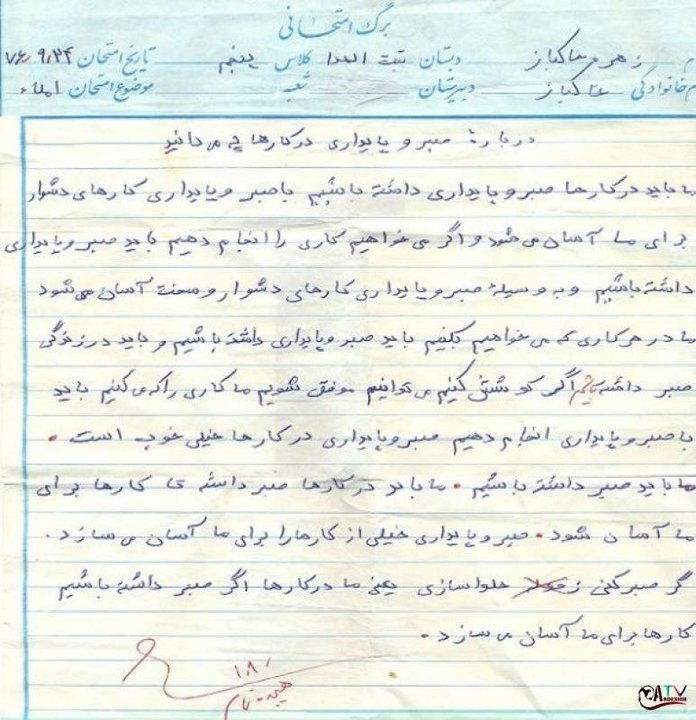 برگ امتحانی
م زهره خاکباز دبستان ثبت الهدا کلاس پنجم تاریخ امتحان ۷۶/۹/۲۴
م خانوادگی خاکباز دبیرستان شعبه موضوع امتحان املاء
دربارهٔ صبر و پایداری درکارها چه می دانید
ما باید درکارها صبر و پایداری داشته باشیم باصبر و پایداری کارهای دشوار
برای ما آسان می شود و اگر می خواهیم کاری را انجام دهیم باید صبر و پایداری
داشته باشیم و به وسیلهٔ صبر و پایداری کارهای دشوار و سخت آسان می شود
ما در هر کاری که می خواهیم بکنیم باید صبر و پایداری داشته باشیم و باید در زندگی
صبر داشته باشیم اگر کوشش کنیم می توانیم موفق شویم ما کاری را که می کنیم باید
با صبر و پایداری انجام دهیم صبر و پایداری در کارها خیلی خوب است .
ما باید صبر داشته باشیم . ما باید در کارها صبر داشته تا کارها برای
ما آسان شود . صبر و پایداری خیلی از کارها را برای ما آسان می سازد .
گر صبر کنی ز حلوا سازی یعنی ما در کارها اگر صبر داشته باشیم
کارها برای ما آسان می سازد .
۱۸/
ATV
ARDESHIR